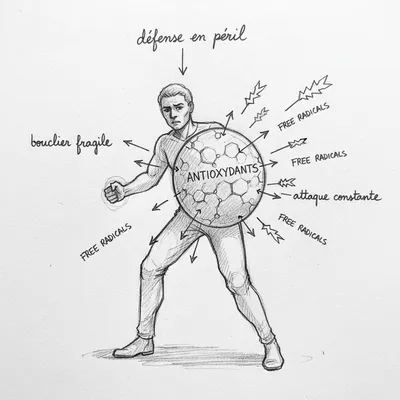 défense en péril
FREE RADICALS
bouclier fragile
FREE RADICALS
ANTIOXYDANTS
attaque constante
FREE RADICALS
FREE RADICALS